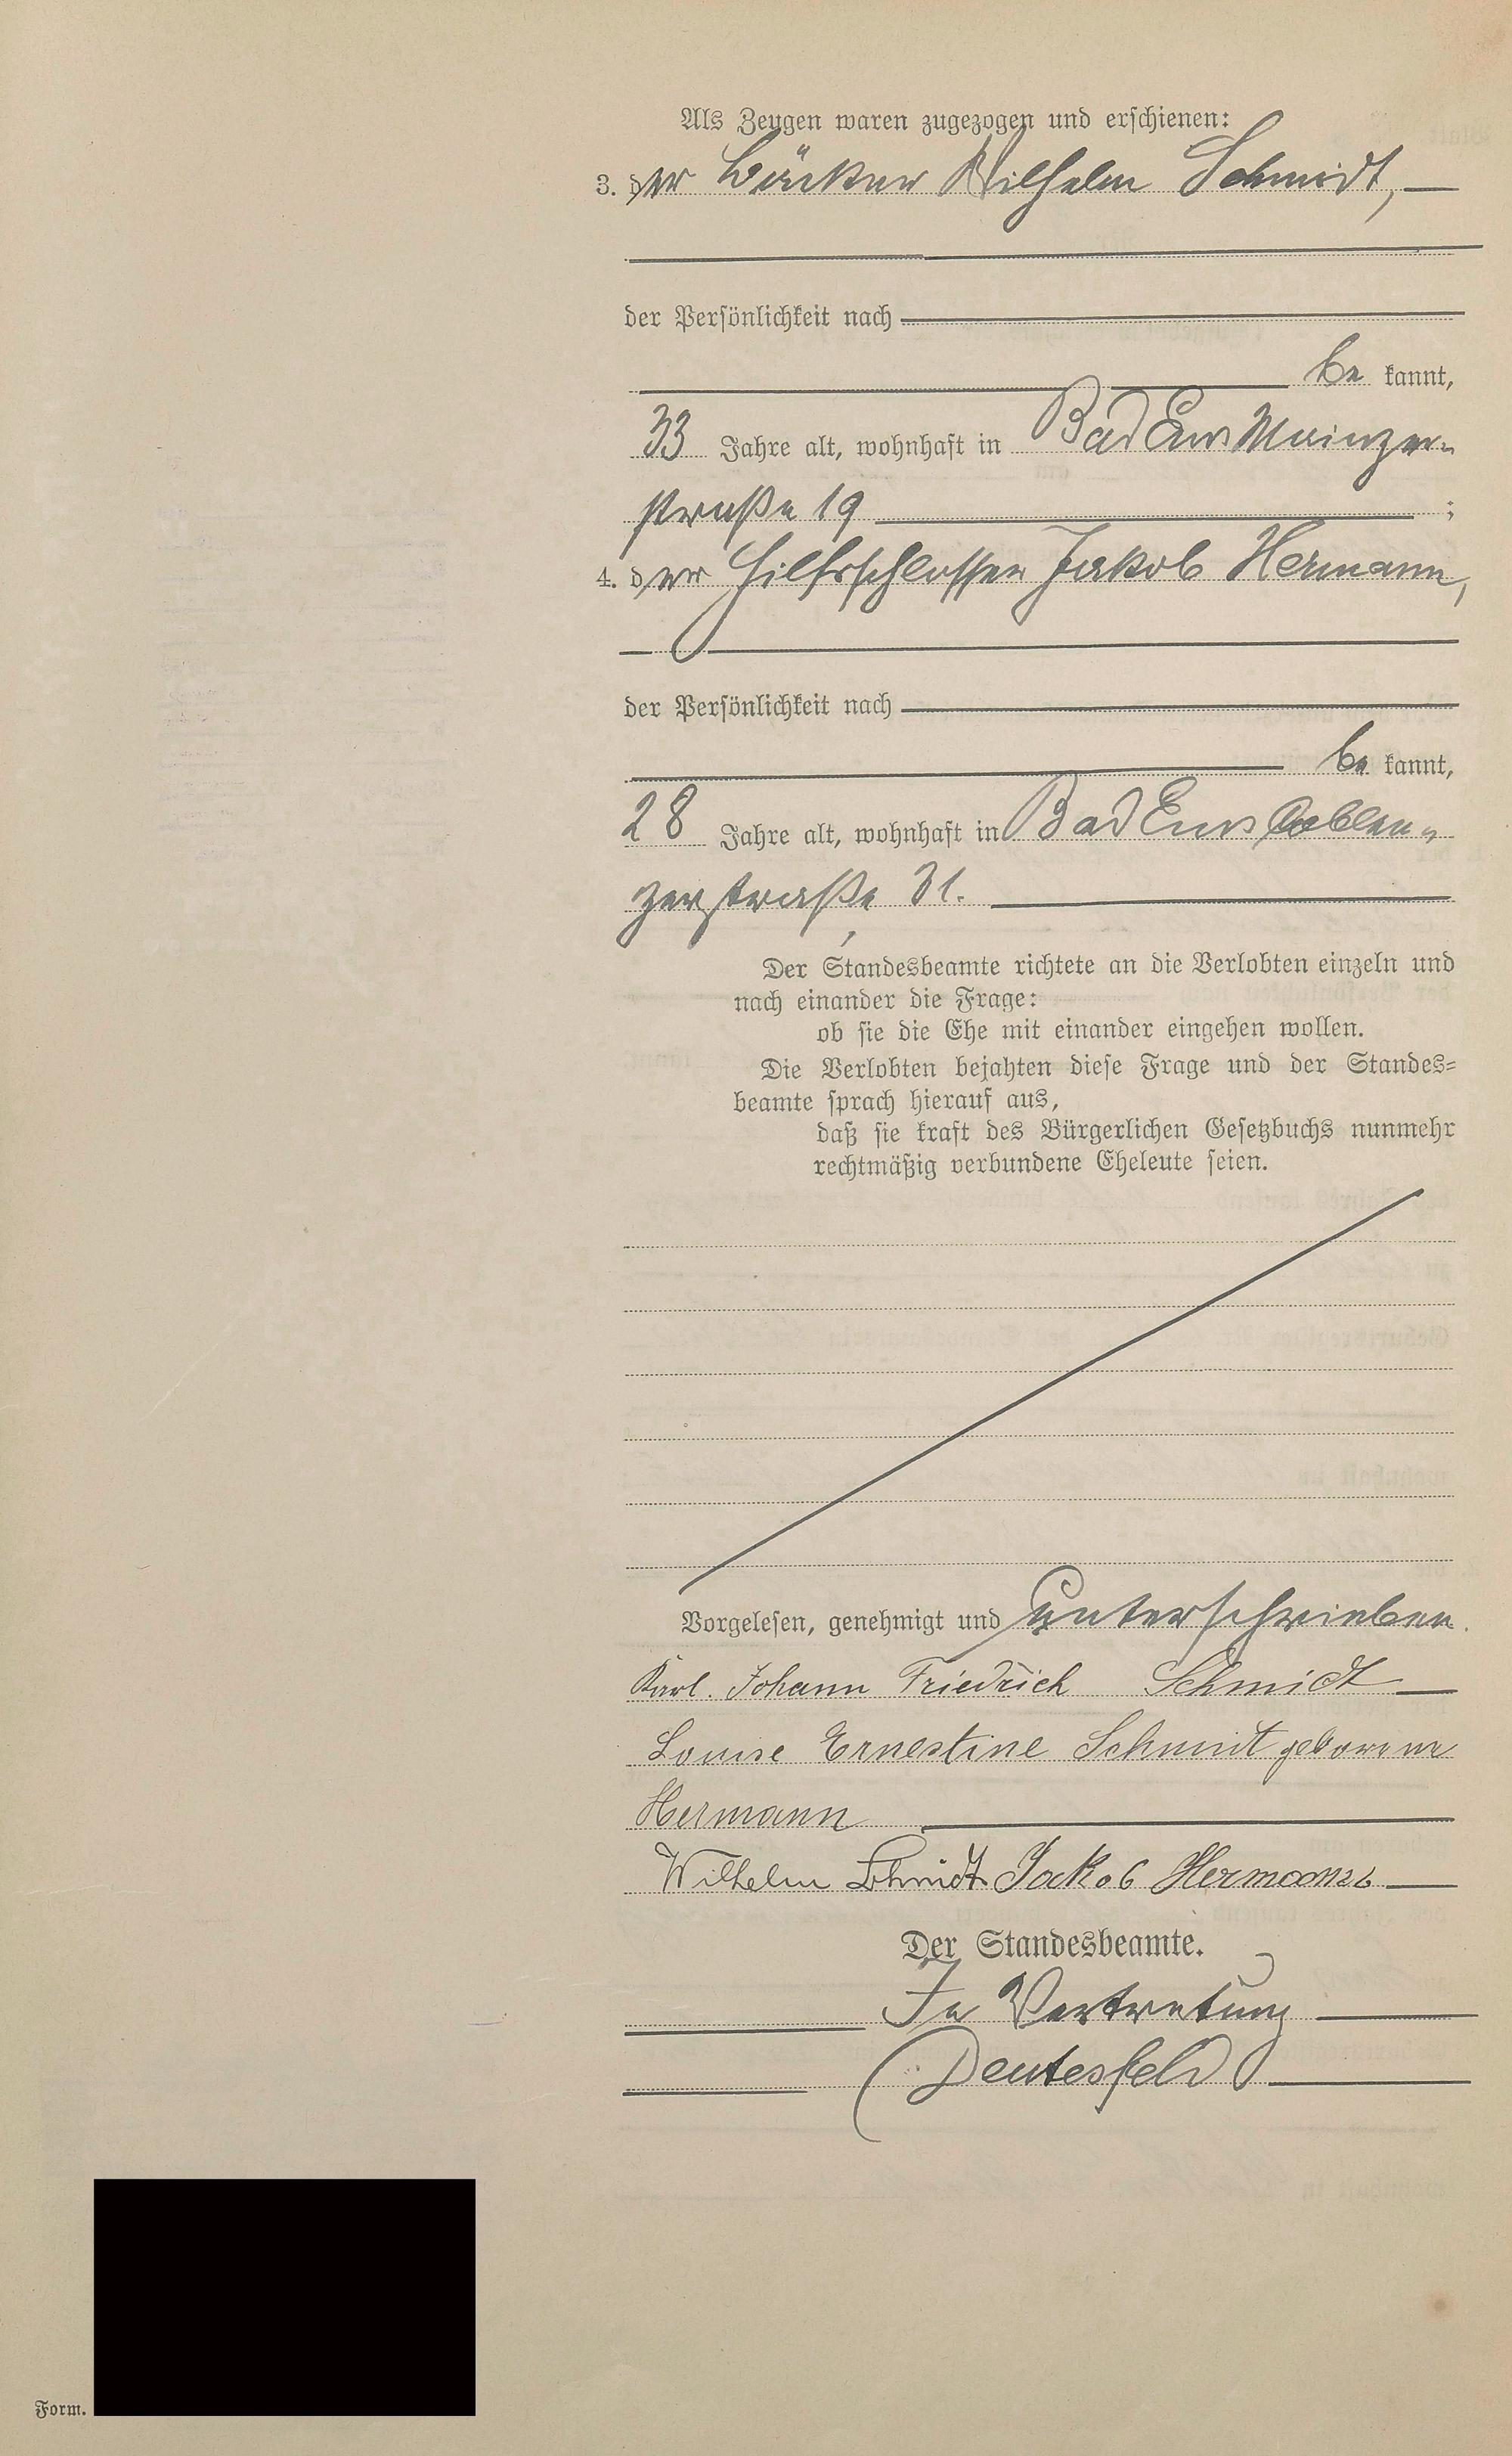 Als Zeugen waren zugezogen und erschienen:
3. der Bäcker Wilhelm Schmidt,
der Persönlichkeit nach
be kannt,
33 Jahre alt, wohnhaft in Bad Ems Mainzer-
straße 19 ;
4. der Hilfsschlosser Jakob Hermann,
der Persönlichkeit nach
be kannt,
28 Jahre alt, wohnhaft in Bad Ems Coblen-
zerstraße 31.
Der Standesbeamte richtete an die Verlobten einzeln und
nach einander die Frage:
ob sie die Ehe mit einander eingehen wollen.
Die Verlobten bejahten diese Frage und der Standes-
beamte sprach hierauf aus,
daß sie kraft des Bürgerlichen Gesetzbuchs nunmehr
rechtmäßig verbundene Eheleute seien.
Vorgelesen, genehmigt und unterschrieben.
Karl. Johann Friedrich Schmidt
Louise Ernestine Schmit geborene
Hermann
Wilhelm Schmidt Jakob Hermann
Der Standesbeamte.
In Vertretung
Deutesfeld
Form.